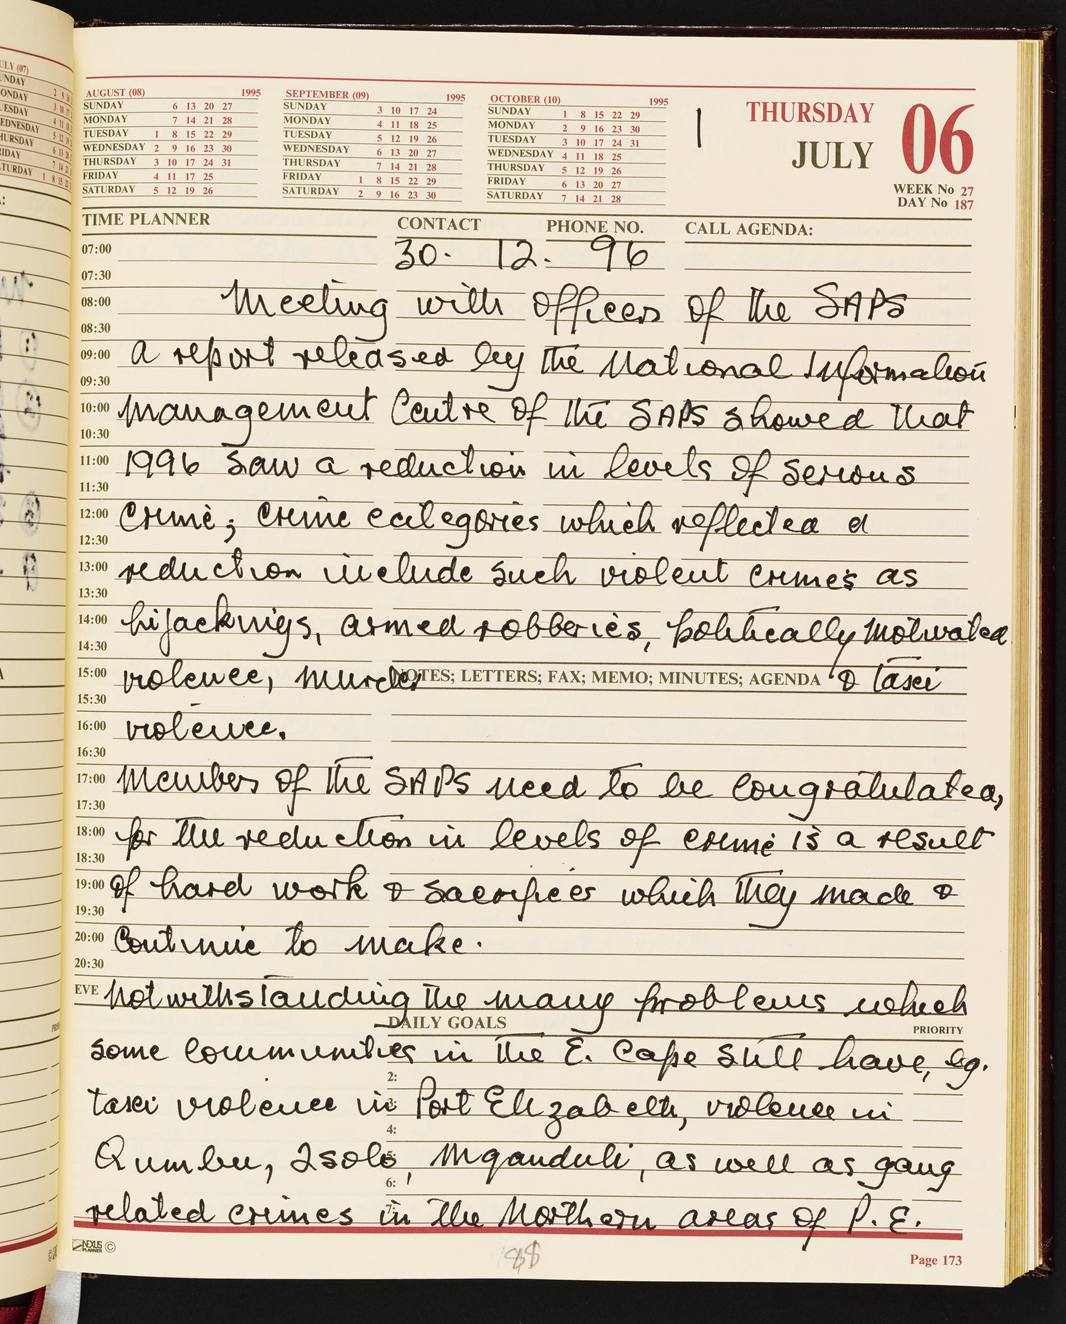 AUGUST (08) 1995
SUNDAY 6 13 20 27
MONDAY 7 14 21 28
TUESDAY 1 8 15 22 29
WEDNESDAY 2 9 16 23 30
THURSDAY 3 10 17 24 31
FRIDAY 4 11 18 25
SATURDAY 5 12 19 26
SEPTEMBER (09) 1995
SUNDAY 3 10 17 24
MONDAY 4 11 18 25
TUESDAY 5 12 19 26
WEDNESDAY 6 13 20 27
THURSDAY 7 14 21 28
FRIDAY 1 8 15 22 29
SATURDAY 2 9 16 23 30
OCTOBER (10) 1995
SUNDAY 1 8 15 22 29
MONDAY 2 9 16 23 30
TUESDAY 3 10 17 24 31
WEDNESDAY 4 11 18 25
THURSDAY 5 12 19 26
FRIDAY 6 13 20 27
SATURDAY 7 14 21 28
1
THURSDAY 06
JULY
WEEK No 27
DAY No 187
TIME PLANNER CONTACT PHONE NO. CALL AGENDA:
07:00 30. 12. 96
07:30
08:00 Meeting with officers of the SAPS
08:30
09:00 A report released by the National Information
09:30
10:00 Management Centre of the SAPS showed that
10:30
11:00 1996 saw a reduction in levels of serious
11:30
12:00 crime; crime categories which reflected a
12:30
13:00 reduction include such violent crimes as
13:30
14:00 hijackings, armed robberies, politically motivated
14:30
15:00 violence, murder & taxi
NOTES; LETTERS; FAX; MEMO; MINUTES; AGENDA
15:30
16:00 violence.
16:30
17:00 Members of the SAPS need to be congratulated,
17:30
18:00 for the reduction in levels of crime is a result
18:30
19:00 of hard work & sacrifices which they made &
19:30
20:00 continue to make.
20:30
EVE Notwithstanding the many problems which
DAILY GOALS PRIORITY
some communities in the E. Cape still have, eg.
2:
taxi violence in Port Elizabeth, violence in
4:
Qumbu, Tsolo, Mqanduli, as well as gang
6:
related crimes in the Northern areas of P.E.
7:
NEXUS PLANNER ©
88
Page 173